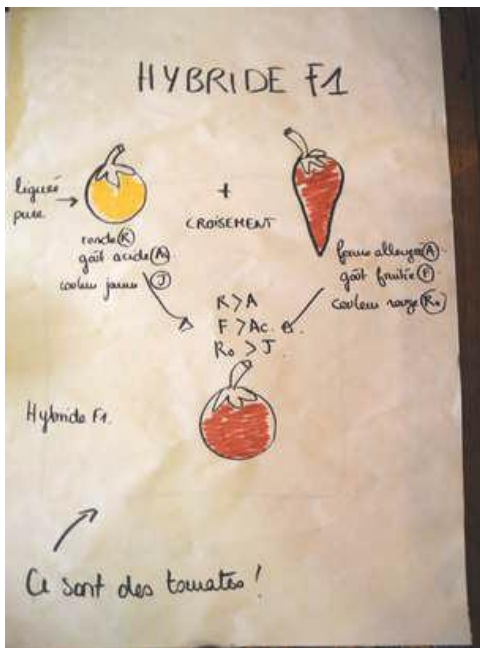 HYBRIDE F1
lignée
pure
+
CROISEMENT
ronde (R)
goût acide (Ac)
couleur jaune (J)
forme allongée (A)
goût fruitée (F)
couleur rouge (Ro)
R > A
F > Ac.
Ro > J
Hybride F1.
Ce sont des tomates !